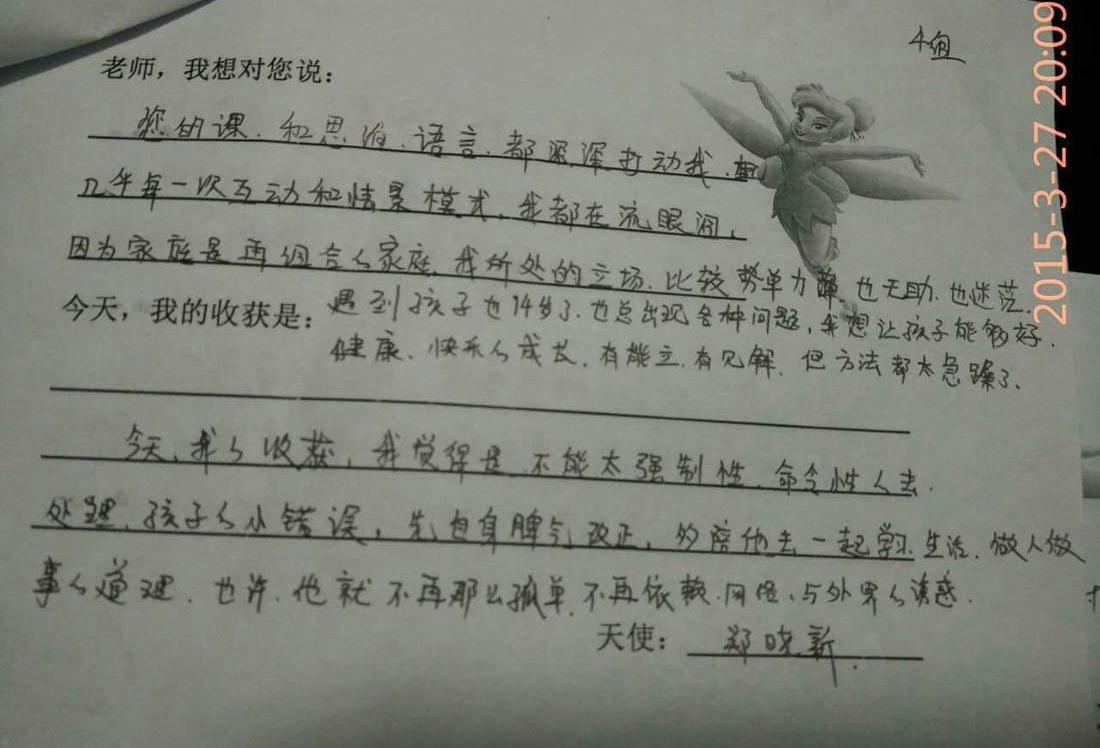 4组
2015-3-27 20:09
老师，我想对您说：
您的课.和思维.语言.都深深打动我.
几乎每一次互动和情景模式.我都在流眼泪，
因为家庭是再组合的家庭.我所处的立场.比较势单力薄.也无助.也迷茫.
今天，我的收获是：
遇到孩子也14岁了.也总出现各种问题，我想让孩子能够好.
健康.快乐的成长.有能立.有见解.但方法都太急躁了.
今天.我的收获，我觉得是.不能太强制性.命令性的去.
处理.孩子的小错误，先自身脾气改正，多陪他去一起学习.生活.做人做
事的道理.也许.他就不再那么孤单.不再依赖.网络.与外界的诱惑.
天使：郑晓新.